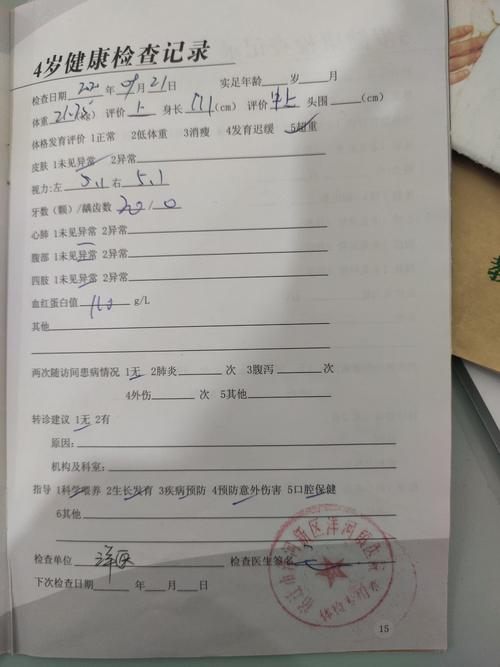 4岁健康检查记录
检查日期 2020 年 09 月 21 日 实足年龄 岁 月
体重 (kg) 评价 上 身长 (cm) 评价 中上 头围 (cm)
体格发育评价 1正常 2低体重 3消瘦 4发育迟缓 5超重
皮肤 1未见异常 2异常
视力:左 5.1 右 5.1
牙数(颗)/龋齿数 20/0
心肺 1未见异常 2异常
腹部 1未见异常 2异常
四肢 1未见异常 2异常
血红蛋白值 g/L
其他
两次随访间患病情况 1无 2肺炎 次 3腹泻 次
4外伤 次 5其他
转诊建议 1无 2有
原因:
机构及科室:
指导 1科学喂养 2生长发育 3疾病预防 4预防意外伤害 5口腔保健
6其他
检查单位 洋医 检查医生签名
下次检查日期 年 月 日
体检专用章
15